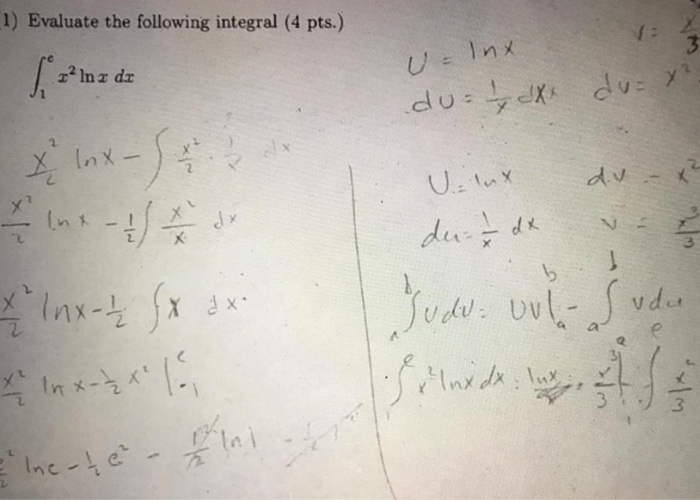 1) Evaluate the following integral (4 pts.)
∫₁ᵉ x² ln x dx
x²/2 lnx - ∫ x²/2 · 1/x dx
x²/2 lnx - 1/2 ∫ x²/x dx
x²/2 lnx - 1/2 ∫ x dx
x²/2 ln x - 1/2 x² |₁ᵉ
lne - 1/2 e² - 1²/2 ln1
U = lnx
v =
du = 1/x dx dv = x²
U = lnx dv = x²
du = 1/x dx v = x³/3
∫ₐᵇ udv = uv|ₐᵇ - ∫ₐᵇ vdu
∫ᵉ x² lnx dx = lnx · x³/3 | - ∫ᵉ x²/3